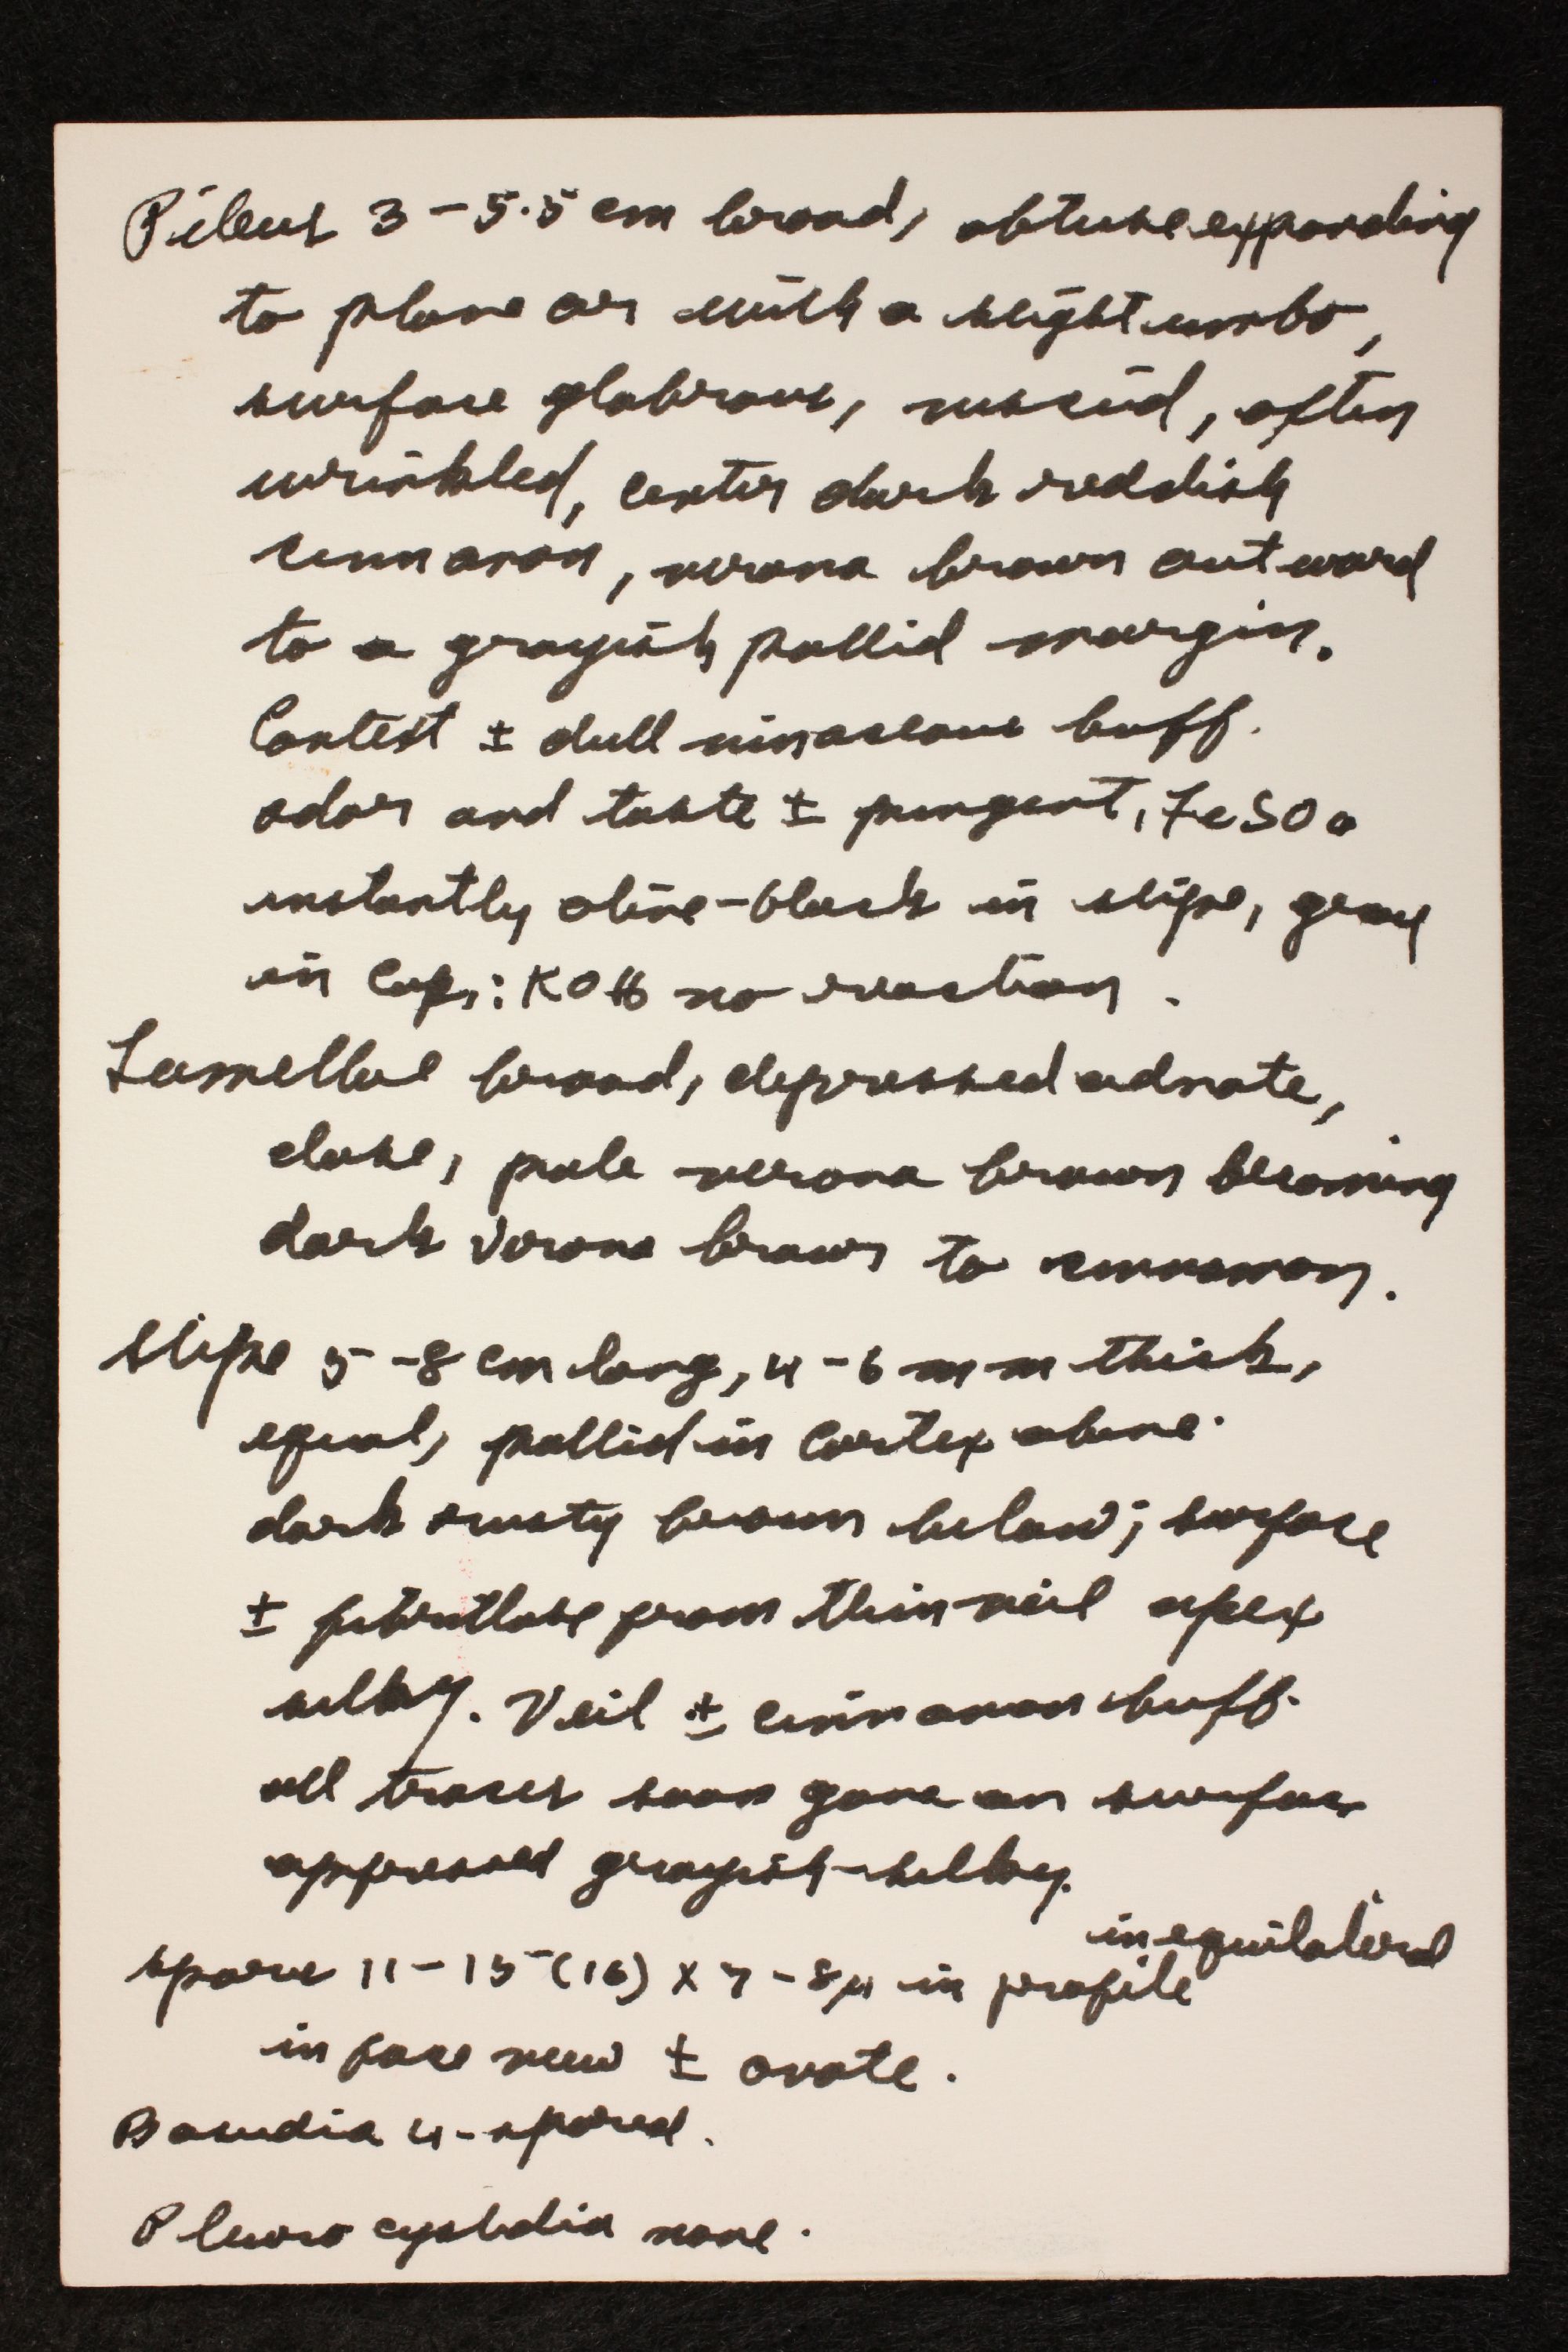 Pileus 3-5.5 cm broad, obtuse expanding
to plane or with a slight umbo,
surface glabrous, viscid, often
wrinkled, center dark reddish
cinnamon, verona brown outward
to a grayish pallid margin.
Context ± dull vinaceous buff.
odor and taste ± pungent, FeSO4
instantly olive-black in stipe, gray
in cap; KOH no reaction.
Lamellae broad, depressed adnate,
close, pale verona brown becoming
dark Verona brown to cinnamon.
Stipe 5-8 cm long, 4-6 mm thick,
equal, pallid in cortex above.
dark rusty brown below; surface
± fibrillose from thin veil apex
silky. Veil ± cinnamon buff.
all traces soon gone on surface
appressed grayish-silky.
inequilateral
spores 11-15 (16) x 7-8µ in profile
in face view ± ovate.
Basidia 4-spored.
Pleurocystidia none.